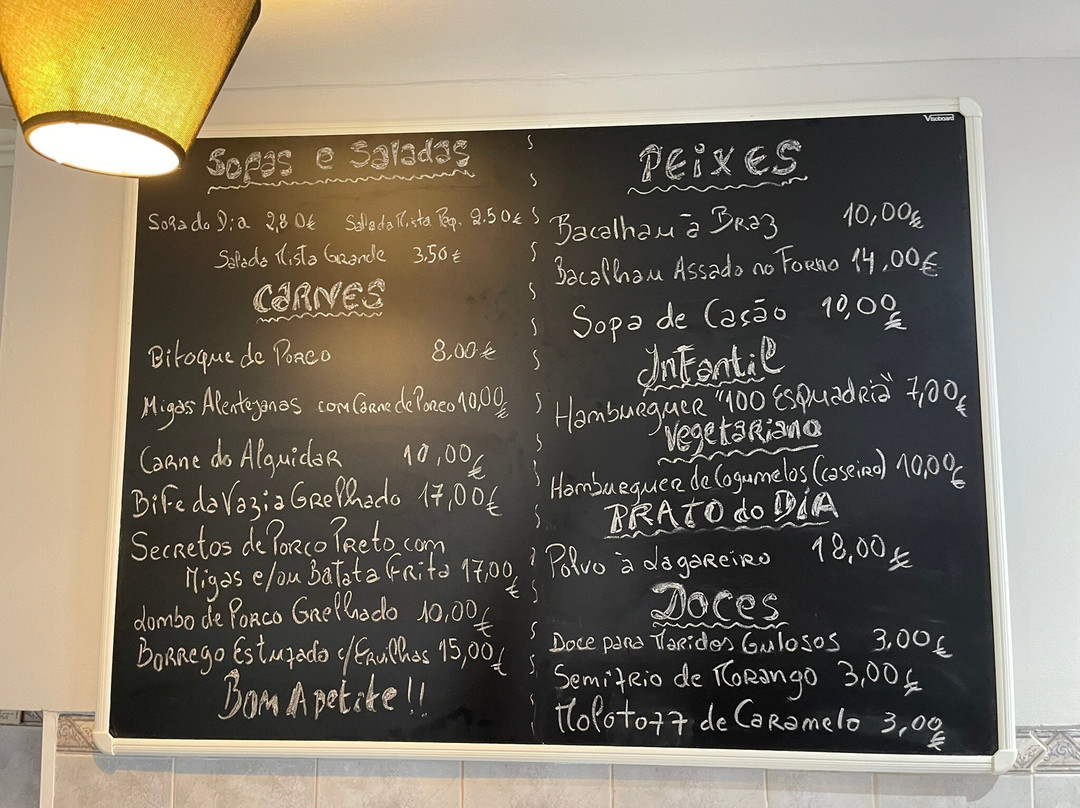 Visoboard
Sopas e Saladas
Sopa do Dia 2,80€ Salada Mista Peq. 2.50€
Salada Mista Grande 3,50€
CARNES
Bitoque de Porco 8.00€
Migas Alentejanas com Carne de Porco 10,00€
Carne do Alguidar 10,00€
Bife da Vazia Grelhado 17,00€
Secretos de Porco Preto com
Migas e/ou Batata Frita 17,00€
Lombo de Porco Grelhado 10,00€
Borrego Estufado c/Ervilhas 15,00€
Bom Apetite!!
PEIXES
Bacalhau à Braz 10,00€
Bacalhau Assado no Forno 14,00€
Sopa de Casão 10,00€
Infantil
Hamburguer "100 Esquadria" 7,00€
Vegetariano
Hamburguer de Cogumelos (caseiro) 10,00€
PRATO do DIA
Polvo à Lagareiro 18,00€
DOCES
Doce para Maridos Gulosos 3,00€
Semifrio de Morango 3,00€
Molotoff de Caramelo 3,00€